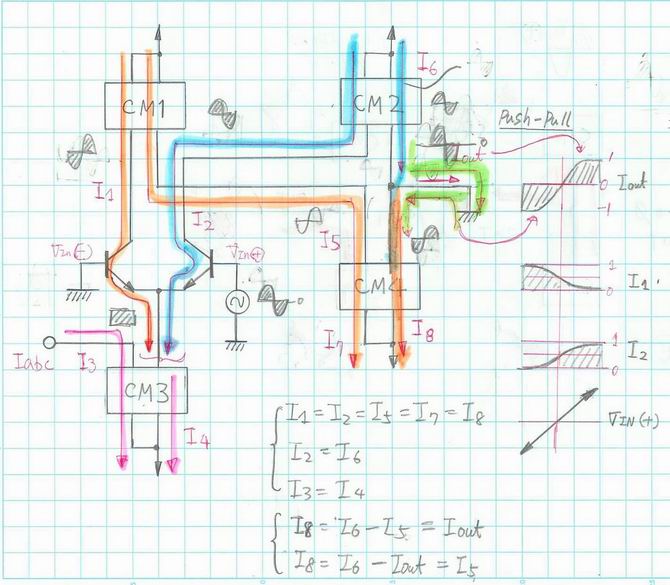 I6
CM1
CM2
Push-Pull
Iout
1
0
-1
Iout
I1
I2
I5
VIN(-)
VIN(+)
CM4
1
0
I1
I7
I8
1
0
I2
Iabc
I3
CM3
I4
VIN(+)
I1=I2=I5=I7=I8
I2=I6
I3=I4
I8=I6-I5=Iout
I8=I6-Iout=I5